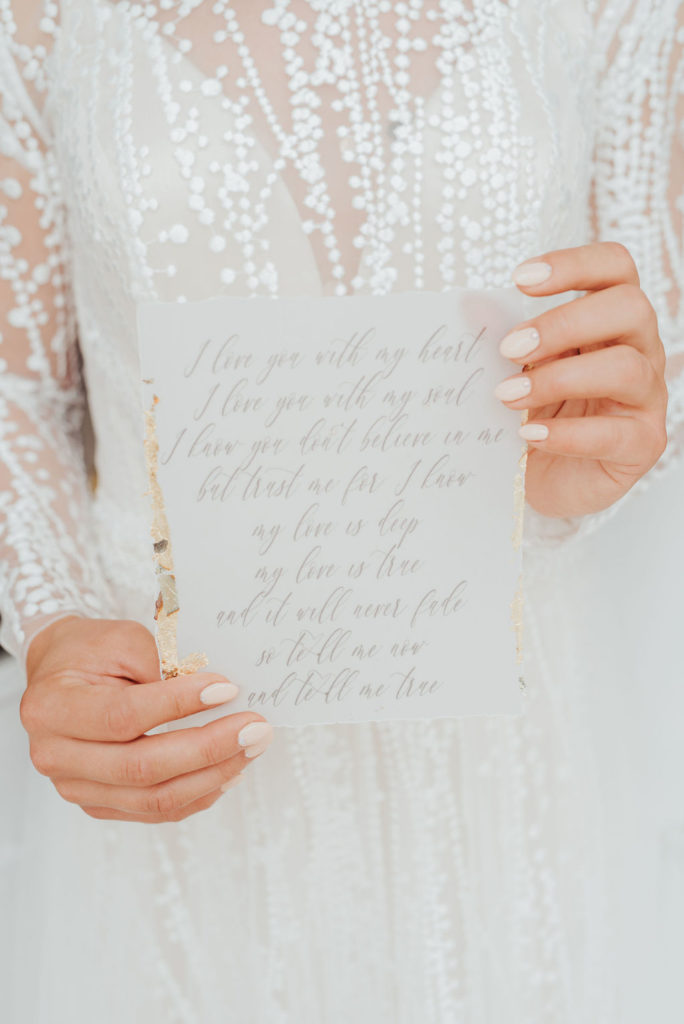 I love you with my heart
I love you with my soul
I know you don't believe in me
but trust me for I know
my love is deep
my love is true
and it will never fade
so tell me now
and tell me true